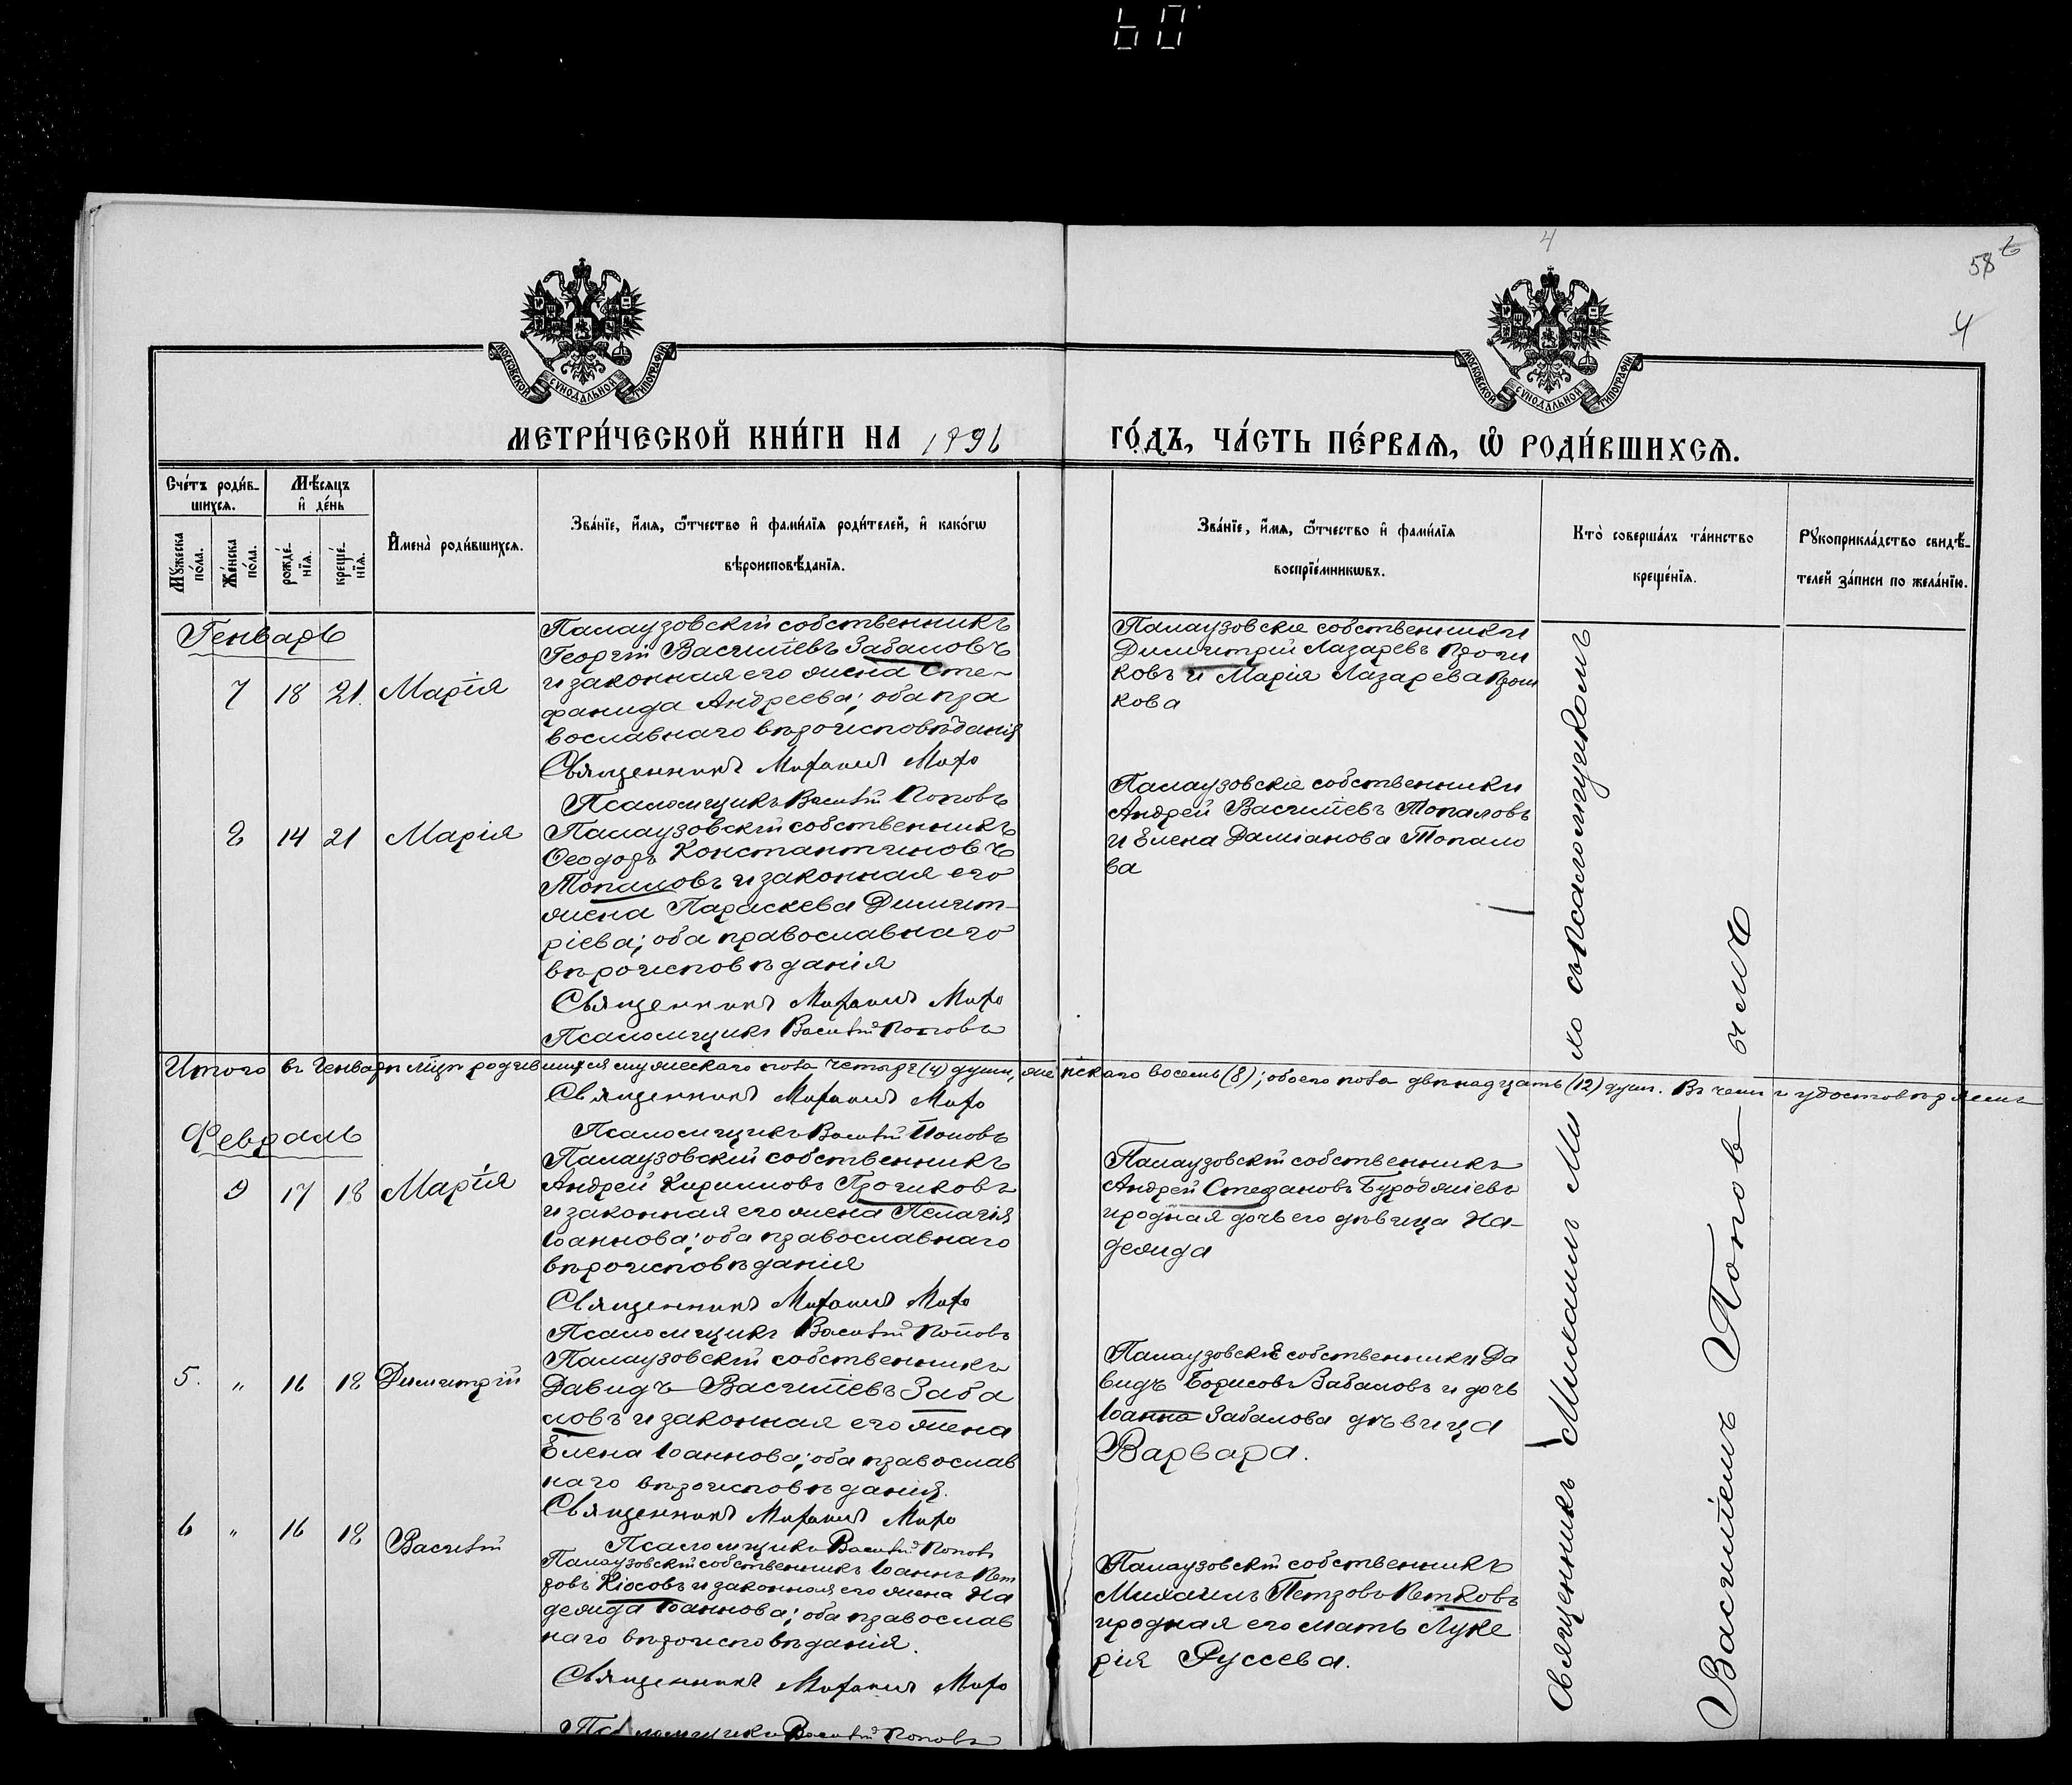 60
4
58
4
МОСКОВСКОЙ СѴНОДАЛЬНОЙ ТИПОГРАФІИ
МОСКОВСКОЙ СѴНОДАЛЬНОЙ ТИПОГРАФІИ
МЕТРИ́ЧЕСКОЙ КНИ́ГИ НА 1896
ГО́ДЪ, ЧА́СТЬ ПЕ́РВАѦ, Ѡ҆ РОДИ́ВШИХСѦ.
Сче́тъ роди́в-
шихсѧ.
Мѣ́сѧцъ
и҆ де́нь
Мꙋ́жеска по́ла.
Же́нска по́ла.
рожде́-нїѧ.
креще́-нїѧ.
И҆мена̀ роди́вшихсѧ.
Зва́нїе, и҆́мѧ, ѻ҆́тчество и҆ фами́лїѧ роди́телей, и҆ како́гѡ
вѣроисповѣ́данїѧ.
Зва́нїе, и҆́мѧ, ѻ҆́тчество и҆ фами́лїѧ
воспрїе́мникѡвъ.
Кто̀ соверша́лъ та́инство
креще́нїѧ.
Рꙋкоприкла́дство свидѣ́-
телей за́писи по жела́нїю.
Генварь
7 18 21. Марія
Палаузовскій собственникъ
Георгій Васильевъ Забаловъ
и законная его жена Сте-
фанида Андреева; оба пра
вославнаго вѣроисповѣданія
Священникъ Михаилъ Михо
Псаломщикъ Василій Поповъ
Палаузовскіе собственники
Димитрій Лазаревъ Прочи
ковъ и Марія Лазарева Прочи
кова
8 14 21 Марія
Палаузовскій собственникъ
Ѳеодоръ Константиновъ
Топаловъ и законная его
жена Параскева Димит-
ріева; оба православнаго
вѣроисповѣданія
Священникъ Михаилъ Михо
Псаломщикъ Василій Поповъ
Палаузовскіе собственники
Андрей Васильевъ Топаловъ
и Елена Даміанова Топало
ва
Итого въ Генварѣ мцѣ родившихся мужескаго пола четыре (4) души, женскаго восемь (8); обоего пола двѣнадцать (12) душъ. Въ чемъ и удостовѣряемъ
Священникъ Михаилъ Михо
Псаломщикъ Василій Поповъ
Февраль
9 17 18 Марія
Палаузовскій собственникъ
Андрей Кирилловъ Прочиковъ
и законная его жена Пелагія
Іоаннова; оба православнаго
вѣроисповѣданія
Священникъ Михаилъ Михо
Псаломщикъ Василій Поповъ
Палаузовскій собственникъ
Андрей Стефановъ Буроджіевъ
и родная дочь его дѣвица На-
дежда
5. " 16 18 Димитрій
Палаузовскій собственникъ
Давидъ Васильевъ Заба
ловъ и законная его жена
Елена Іоаннова; оба православ
наго вѣроисповѣданія.
Священникъ Михаилъ Михо
Псаломщикъ Василій Поповъ
Палаузовскіе собственники Да
видъ Борисовъ Забаловъ и дочь
Іоанна Забалова дѣвица
Варвара.
6 " 16 18 Василій
Палаузовскій собственникъ Іоаннъ Пет
ровъ Кіосовъ и законная его жена На
дежда Іоаннова; оба православ
наго вѣроисповѣданія.
Священникъ Михаилъ Михо
Псаломщикъ Василій Поповъ
Палаузовскій собственникъ
Михаилъ Петровъ Петковъ
и родная его мать Луке
рія Руссева.
Священникъ Михаилъ Ми хо съ псаломщикомъ
Василіемъ Поповымъ